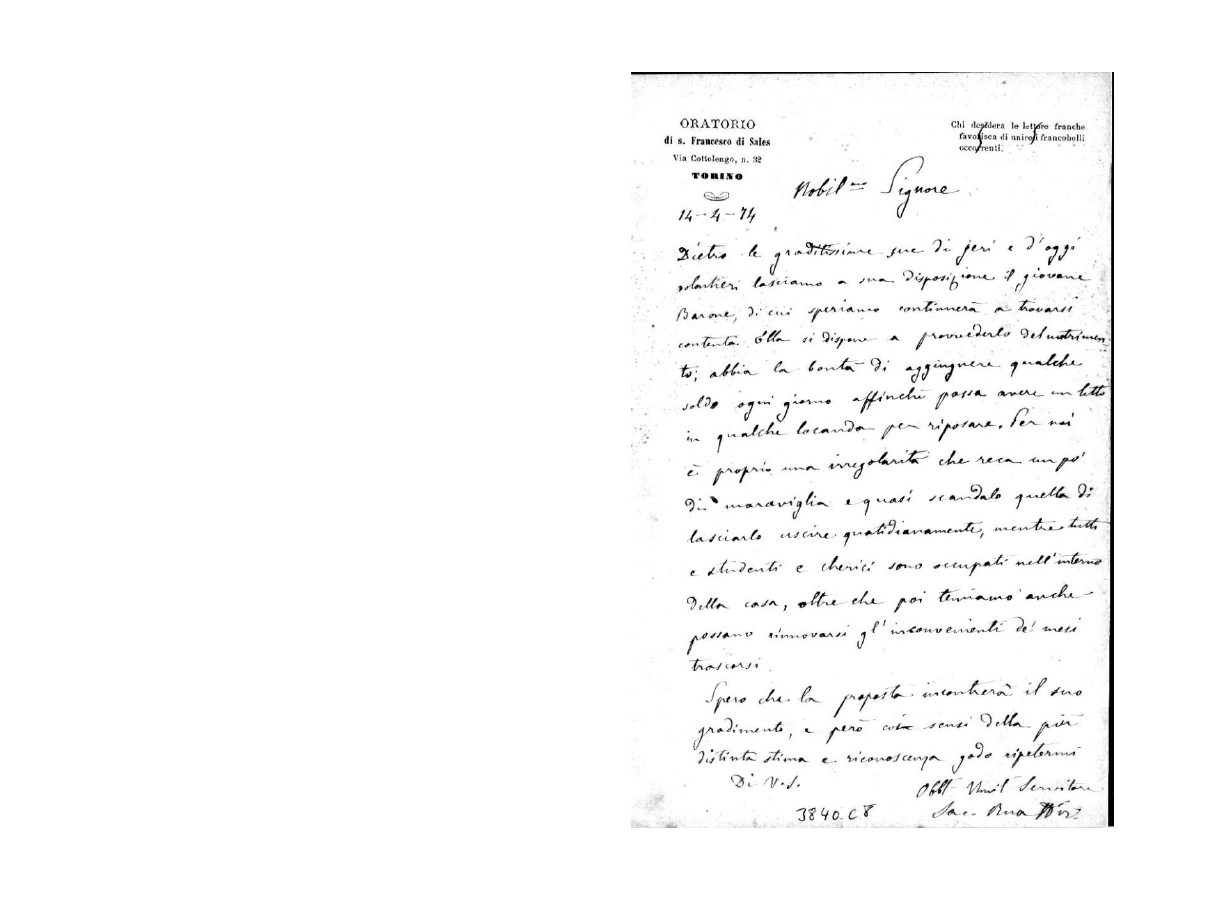 ORATORIO
di s. Francesco di Sales
Via Cottolengo, n. 32
TORINO
Chi desidera le lettere franche
favorisca di unire i francobolli
occorrenti.
14-4-74
Nobil.mo Signore
Dietro le graditissime sue di jeri e d'oggi
volentieri lasciamo a sua disposizione il giovane
Barone, di cui speriamo continuerà a trovarsi
contenta. Ella si dispone a provvederlo del nutrimen-
to; abbia la bontà di aggiugnere qualche
soldo ogni giorno affinchè possa avere un letto
in qualche locanda per riposare. Per noi
è proprio una irregolarità che reca un po'
di maraviglia e quasi scandalo quella di
lasciarlo uscire quotidianamente, mentre tutti
e studenti e cherici sono occupati nell'interno
della casa, oltre che poi temiamo anche
possano rinnovarsi gl'inconvenienti de' mesi
trascorsi.
Spero che la proposta incontrerà il suo
gradimento, e però sensi della più
distinta stima e riconoscenza godo ripetermi
Di V.S.
Obbl. Umil Servitore
Sac. Rua
3840.C8